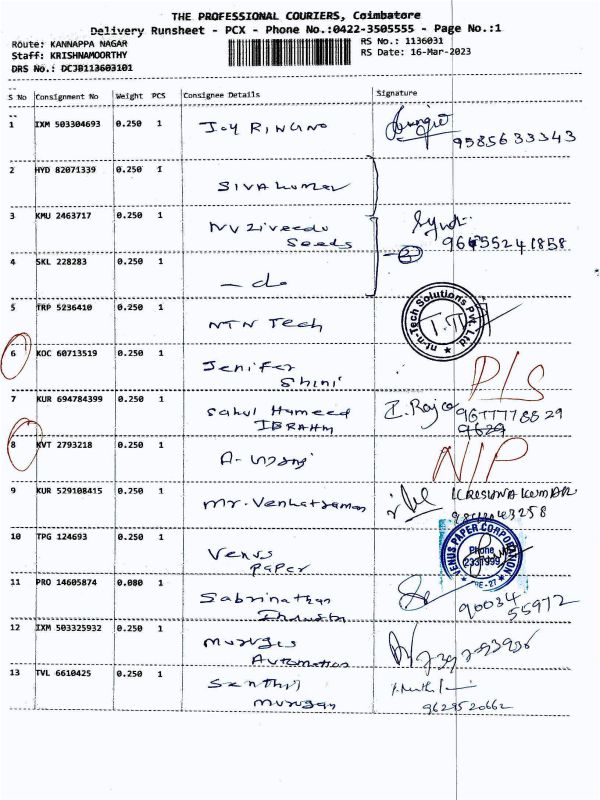 THE PROFESSIONAL COURIERS, Coimbatore
Delivery Runsheet - PCX - Phone No.:0422-3505555 - Page No.:1
Route: KANNAPPA NAGAR
RS No.: 1136031
Staff: KRISHNAMOORTHY
RS Date: 16-Mar-2023
DRS No.: DCJB113603101
S No Consignment No Weight PCS Consignee Details Signature
1 IXM 503304693 0.250 1
9585633343
2 HYD 82071339 0.250 1
Sivakumar
3 KMU 2463717 0.250 1
Nuziveedu
Seeds
4 SKL 228283 0.250 1
- do
5 TRP 5236410 0.250 1
NTN Tech
nt-n-Tech Solutions Pvt. Ltd
6 KOC 60713519 0.250 1
Jenifer
Shini
7 KUR 694784399 0.250 1
Sahul Hameed
IBRAHM
9629
8 KVT 2793218 0.250 1
9 KUR 529108415 0.250 1
Mr. Venkatraman
KRISHNA KUMAR
10 TPG 124693 0.250 1
Venus
Paper
VENUS PAPER CORPORATION
Phone
2331999
11 PRO 14605874 0.080 1
Sabrinathan
90034
55972
12 IXM 503325932 0.250 1
Murugis
Automation
13 TVL 6610425 0.250 1
Senthil
Murugan
9629520662